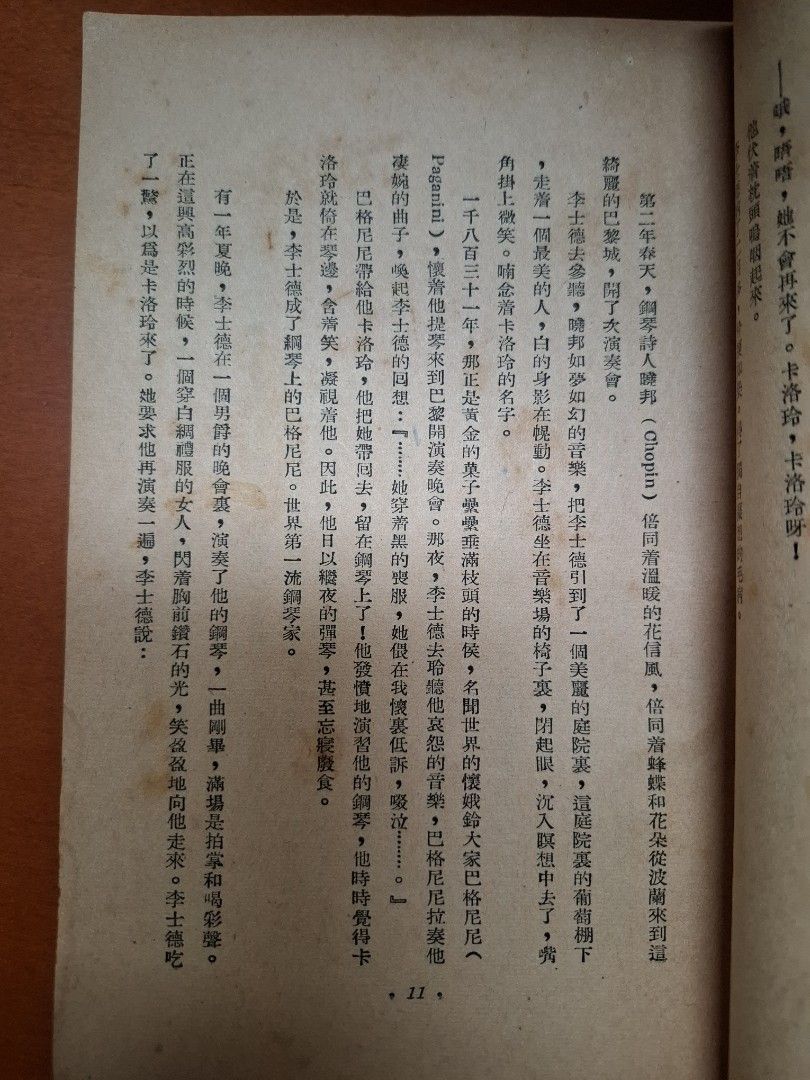 ——哦，嗯嗯，她不會再來了。卡洛玲，卡洛玲呀！
他伏着枕頭嗚咽起來。
第二年春天，鋼琴詩人曉邦（Chopin）倍同着溫暖的花信風，倍同着蜂蝶和花朵從波蘭來到這
綺麗的巴黎城，開了次演奏會。
李士德去參聽，曉邦如夢如幻的音樂，把李士德引到了一個美麗的庭院裏，這庭院裏的葡萄棚下
，走着一個最美的人，白的身影在幌動。李士德坐在音樂場的椅子裏，閉起眼，沉入瞑想中去了，嘴
角掛上微笑。喃念着卡洛玲的名字。
一千八百三十一年，那正是黃金的菓子纍纍垂滿枝頭的時侯，名聞世界的懷娥鈴大家巴格尼尼（
Paganini），懷着他提琴來到巴黎開演奏晚會。那夜，李士德去聆聽他哀怨的音樂，巴格尼尼拉奏他
凄婉的曲子，喚起李士德的回想：『………她穿着黑的喪服，她偎在我懷裏低訴，啜泣………。』
巴格尼尼帶給他卡洛玲，他把她帶回去，留在鋼琴上了！他發憤地演習他的鋼琴，他時時覺得卡
洛玲就倚在琴邊，含着笑，凝視着他。因此，他日以繼夜的彈琴，甚至忘寢廢食。
於是，李士德成了鋼琴上的巴格尼尼。世界第一流鋼琴家。
有一年夏晚，李士德在一個男爵的晚會裏，演奏了他的鋼琴，一曲剛畢，滿場是拍掌和喝彩聲。
正在這興高彩烈的時候，一個穿白綢禮服的女人，閃着胸前鑽石的光，笑盈盈地向他走來。李士德吃
了一驚，以爲是卡洛玲來了。她要求他再演奏一遍，李士德說：
，11，